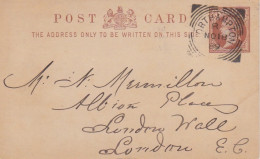 POST CARD
THE ADDRESS ONLY TO BE WRITTEN ON THIS SIDE
NORTHAMPTON
Mr. N. Mumillon
Albion Place
London Wall
London E.C.